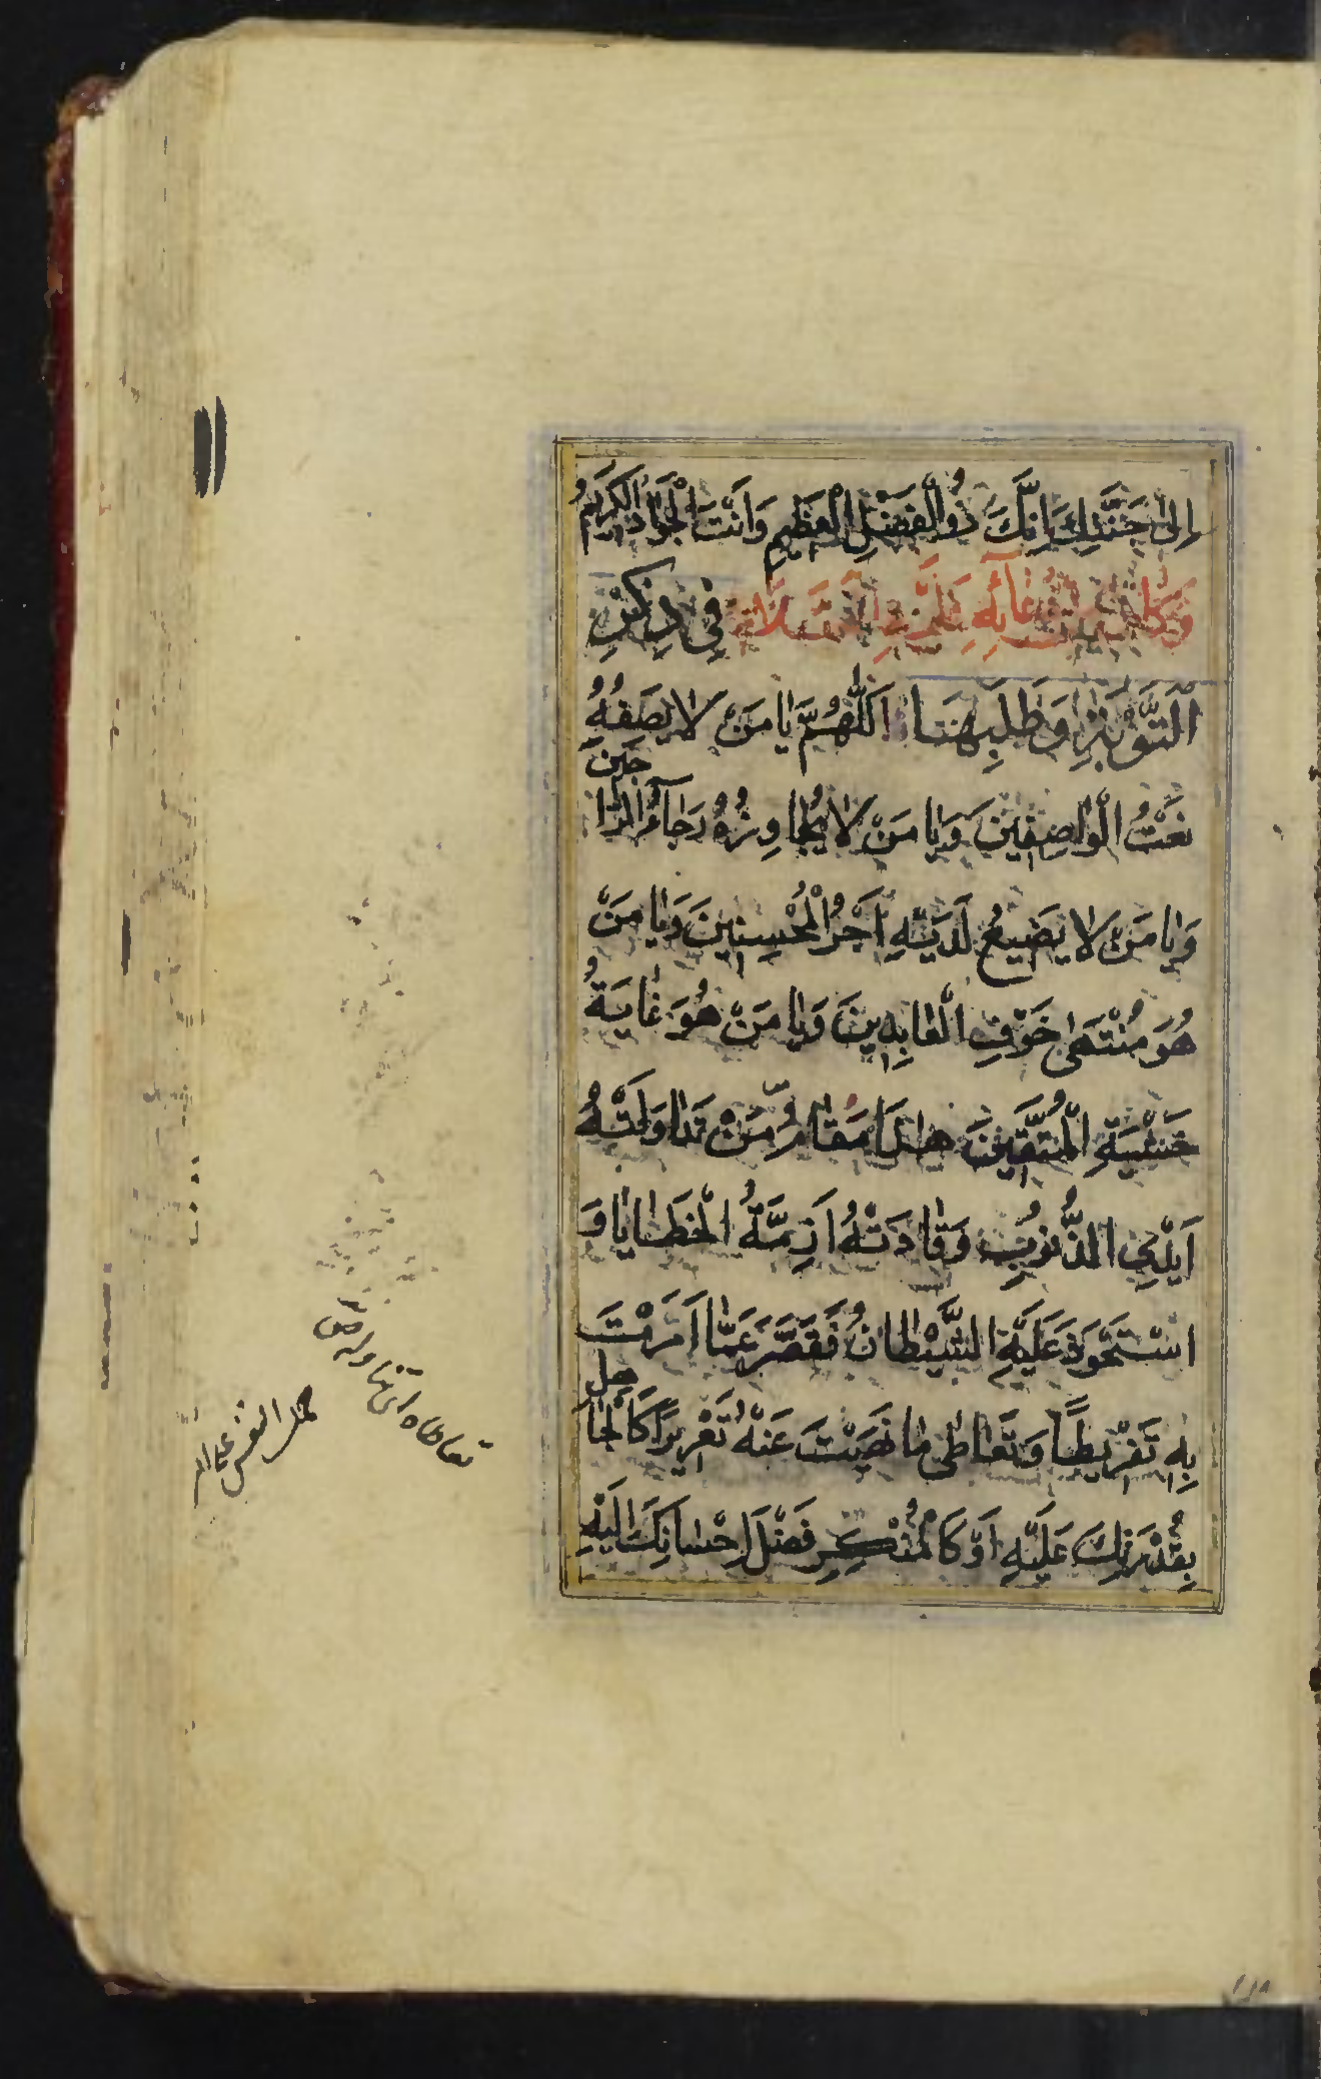 إِلىٰ جَنَّتِكَ إِنَّكَ ذُو الْفَضْلِ الْعَظِيمِ وَأَنْتَ الْجَوَادُ الْكَرِيمُ
وَكَانَ مِنْ دُعَائِهِ عَلَيْهِ السَّلَامُ فِي ذِكْرِ
التَّوْبَةِ وَطَلَبِهَا اَللّٰهُمَّ يَا مَنْ لَا يَصِفُهُ
نَعْتُ الْوَاصِفِينَ وَيَا مَنْ لَا يُجَاوِزُهُ رَجَآءُ الرَّاجِينَ
وَيَا مَنْ لَا يَضِيعُ لَدَيْهِ اَجْرُ الْمُحْسِنِينَ وَيَا مَنْ
هُوَ مُنْتَهَىٰ خَوْفِ الْعَابِدِينَ وَيَا مَنْ هُوَ غَايَةُ
خَشْيَةِ الْمُتَّقِينَ هٰذَا مَقَامُ مَنْ تَدَاوَلَتْهُ
اَيْدِي الذُّنُوبِ وَقَادَتْهُ اَزِمَّةُ الْخَطَايَا وَ
اسْتَحْوَذَ عَلَيْهِ الشَّيْطَانُ فَقَصَّرَ عَمَّا اَمَرْتَ
بِهِ تَفْرِيطًا وَتَعَاطىٰ مَا نَهَيْتَ عَنْهُ تَغْرِيرًا كَالْجَاهِلِ
بِقُدْرَتِكَ عَلَيْهِ اَوْ كَالْمُنْكِرِ فَضْلَ اِحْسَانِكَ اِلَيْهِ